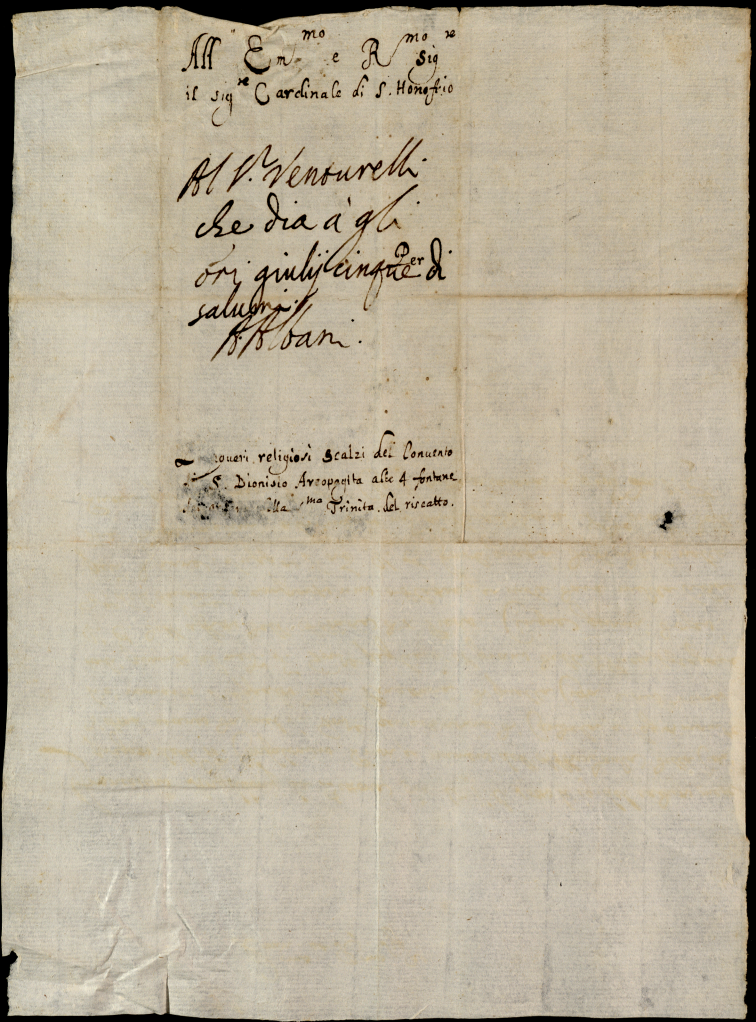 All Em.mo e R.mo Sig.re
il sig.re Cardinale di S. Honofrio
Al V.º Venturelli
che dia à gli
ori giulij cinque Per di
A. Albani.
poueri religiosi scalzi del Conuento
S. Dionisio Areopagita alle 4 fontane
mo Trinita del riscatto.